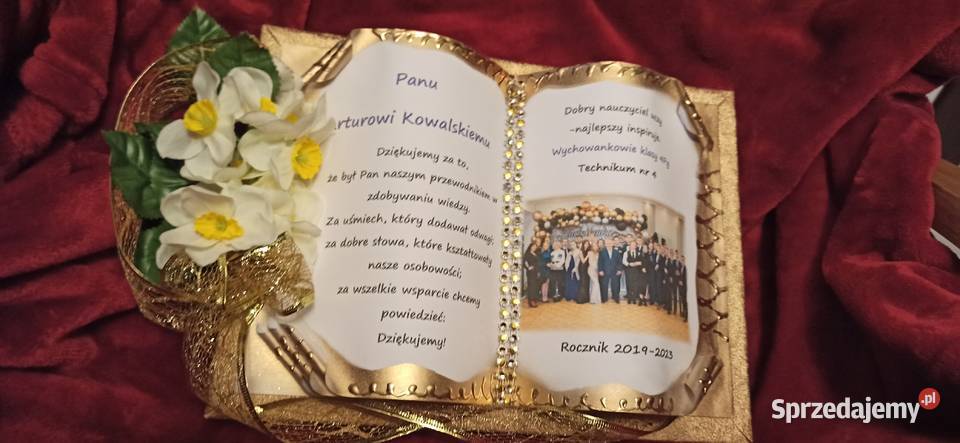 Panu
Arturowi Kowalskiemu
Dziękujemy za to,
że był Pan naszym przewodnikiem w
zdobywaniu wiedzy.
Za uśmiech, który dodawał odwagi;
za dobre słowa, które kształtowały
nasze osobowości;
za wszelkie wsparcie chcemy
powiedzieć:
Dziękujemy!
Dobry nauczyciel uczy
-najlepszy inspiruje.
Wychowankowie klasy
Technikum nr 4
Rocznik 2019-2023
Sprzedajemy.pl